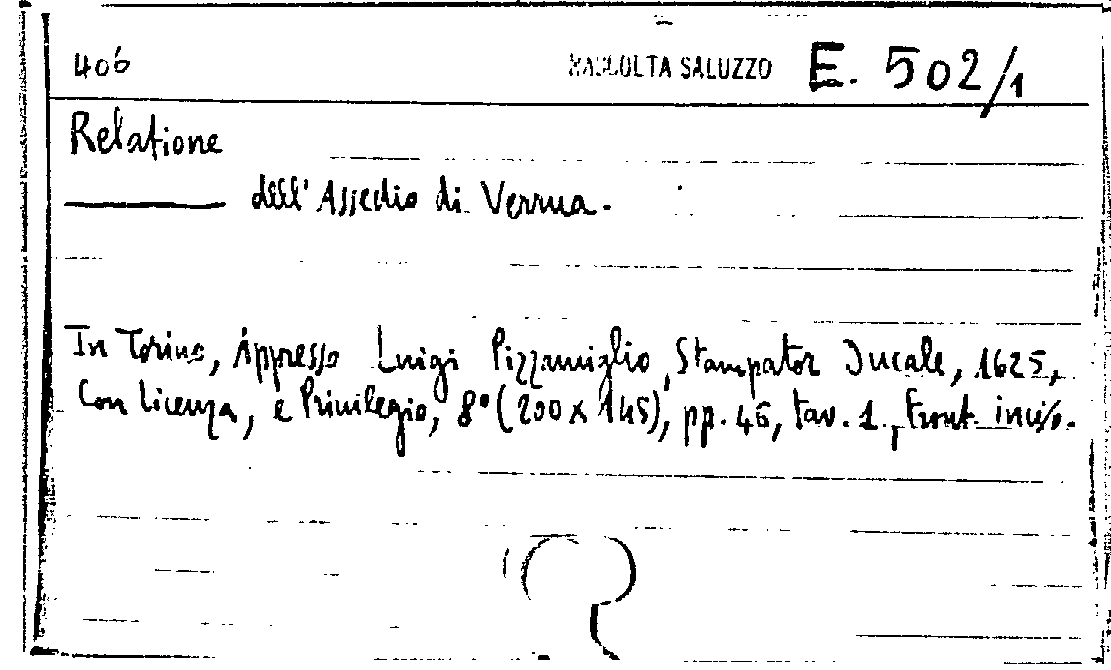 406 RACCOLTA SALUZZO E. 502/1
Relatione
dell' Assedio di Verrua.
In Torino, Appresso Luigi Pizzamiglio, Stampator Ducale, 1625,
Con licenza, e Privilegio, 8° (200 x 145), pp. 46, tav. 1., front. inciso.